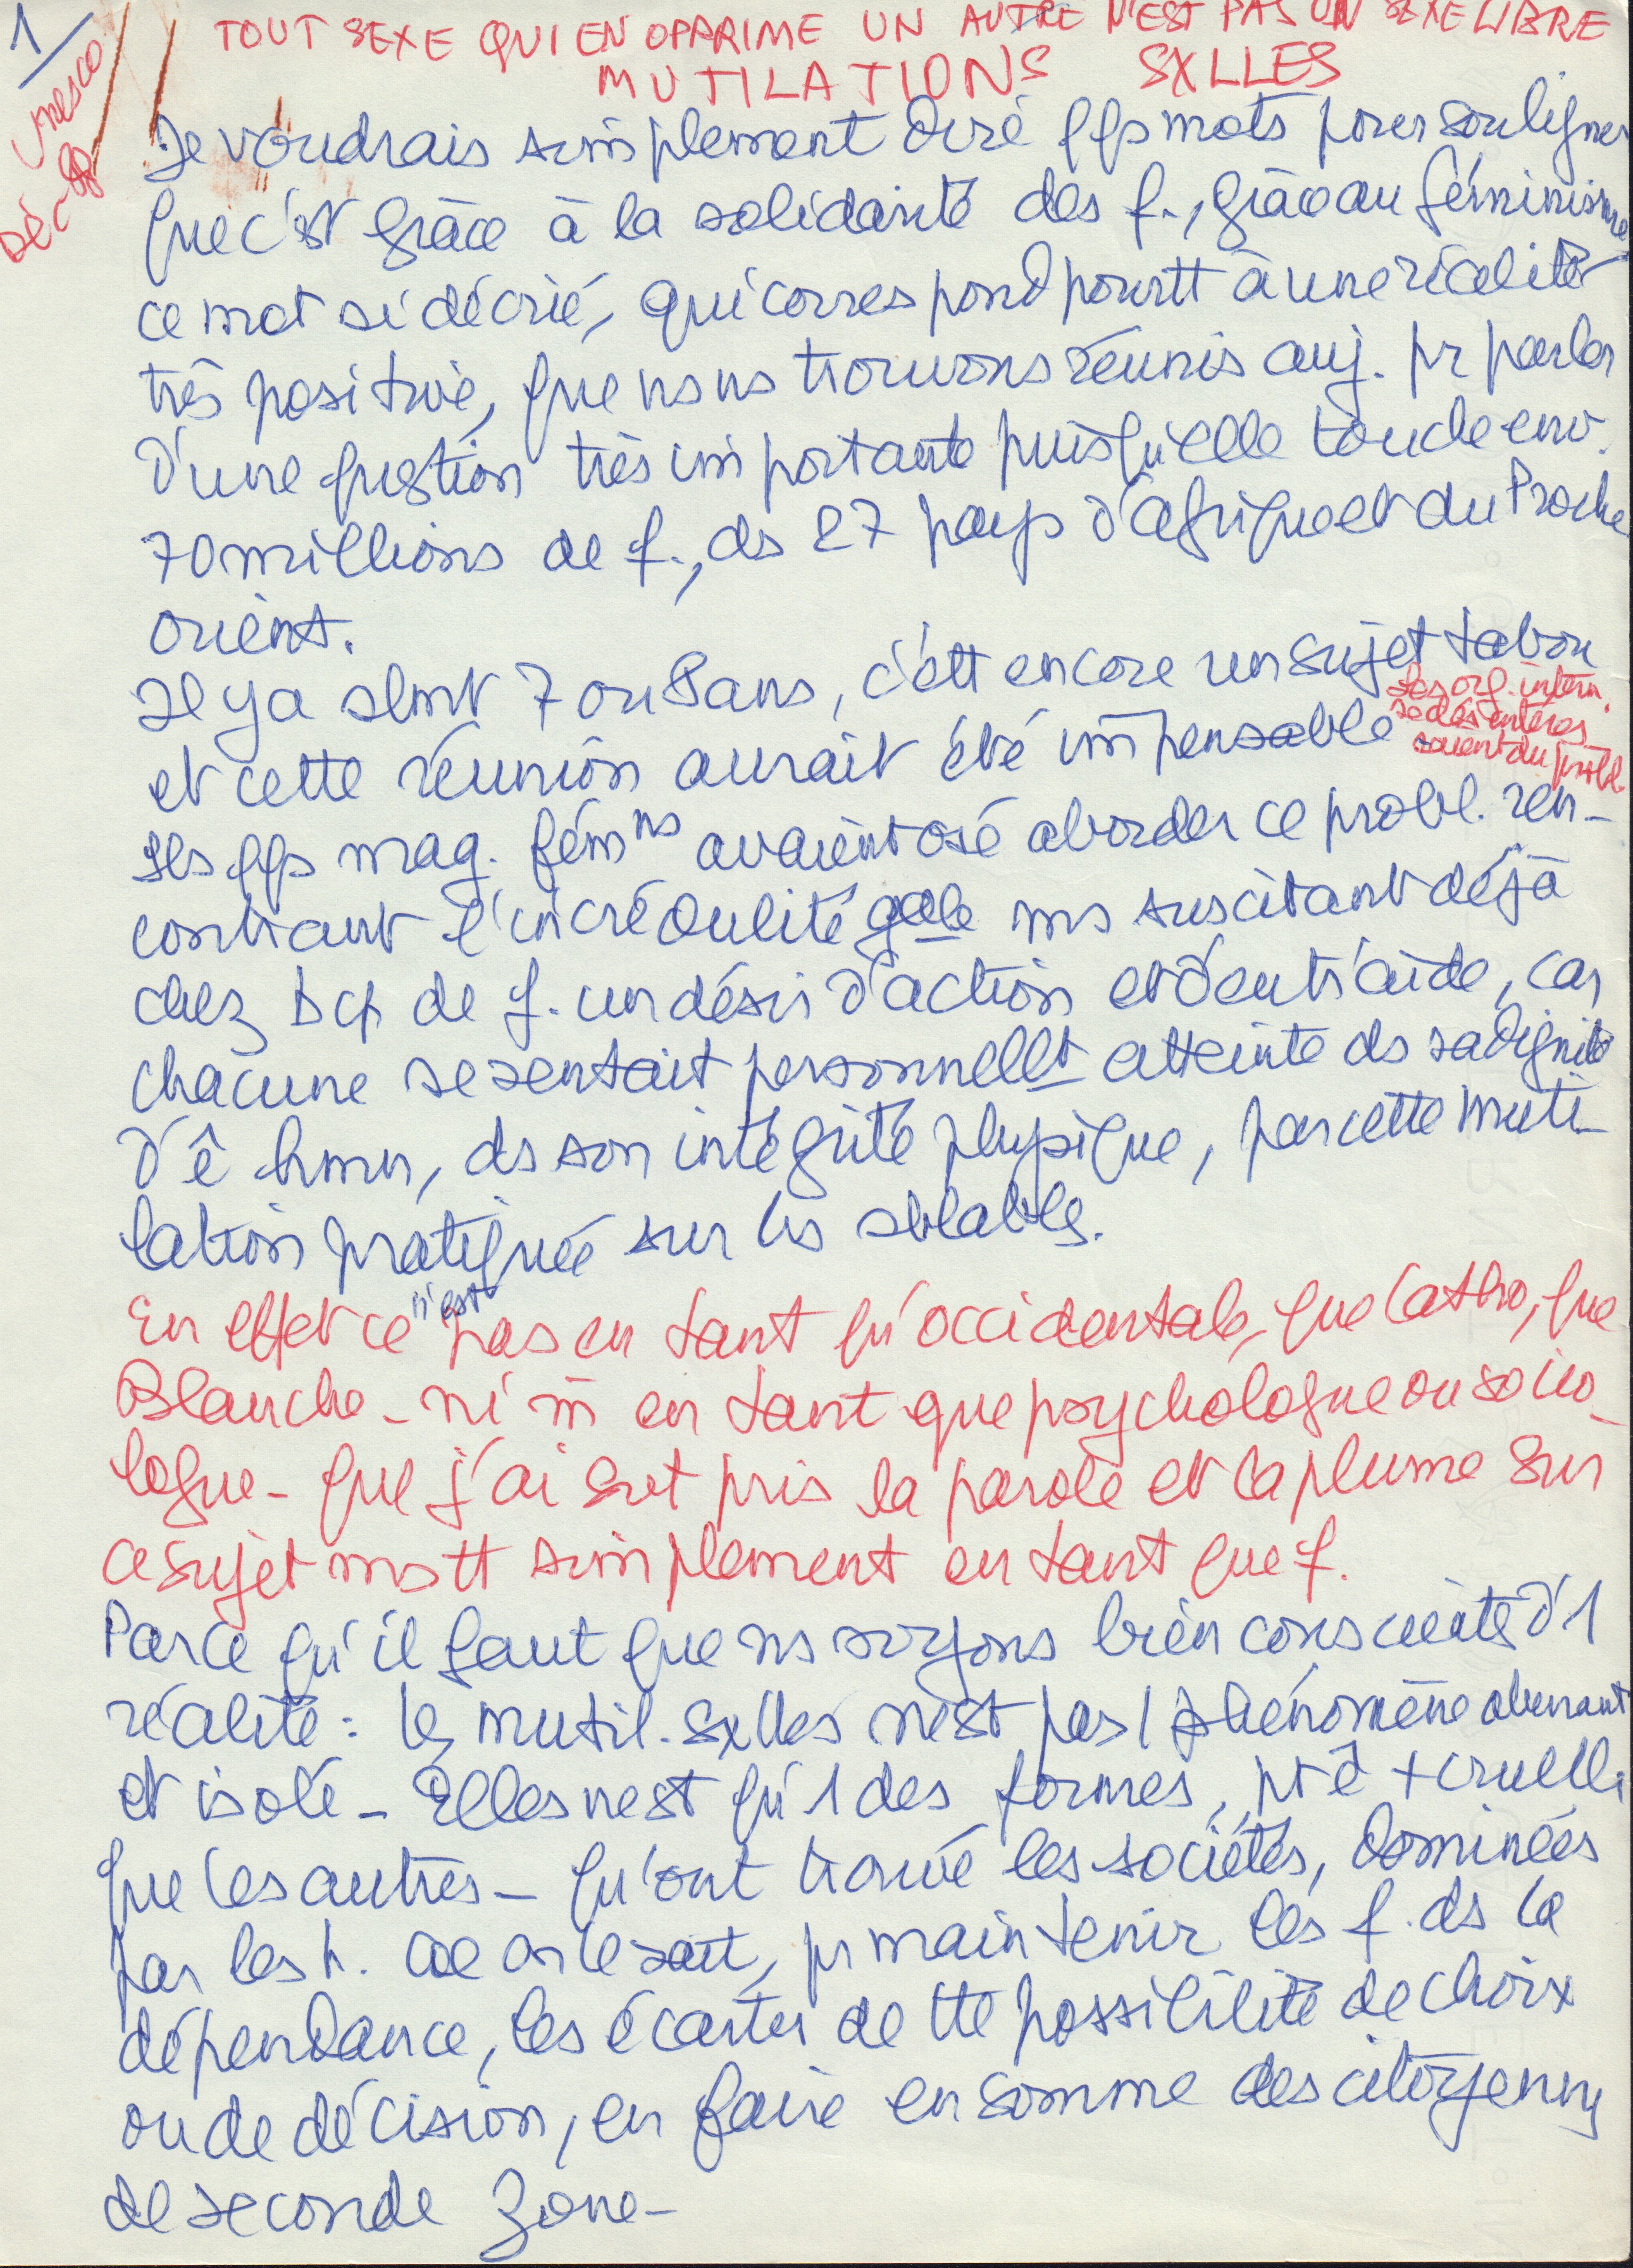 1
Unesco
Déc 80
TOUT SEXE QUI EN OPPRIME UN AUTRE N'EST PAS UN SEXE LIBRE
MUTILATIONS SXLLES
Je voudrais simplement dire qqs mots pour souligner
que c'est grâce à la solidarité des f., grâce au féminisme,
ce mot si décrié, qui correspond pourtt à une réalité
très positive, que ns ns trouvons réunis auj. pr parler
d'une question très importante puisqu'elle touche env.
70 millions de f., ds 27 pays d'Afrique et du Proche
orient.
Il y a slmt 7 ou 8 ans, c'ett encore un sujet tabou
et cette réunion aurait été impensable
Les org. intern.
se désintéres
saient du probl.
Sls qqs mag. fémns avaient osé aborder ce probl. ren-
contrant l'incrédulité gale ms suscitant déjà
chez bcp de f. un désir d'action et d'entr'aide, car
chacune se sentait personnellt atteinte ds sa dignité
d'ê hmn, ds son intégrité physique, par cette muti-
lation pratiquée sur les sblables.
En effet ce n'est pas en tant qu'occidentale, que catho, que
Blanche - ni m̄ en tant que psychologue ou socio-
logue - que j'ai srt pris la parole et la plume sur
ce sujet ms tt simplement en tant que f.
Parce qu'il faut que ns soyons bien conscients d'1
réalité : les mutil. sxlles n'est pas 1 phénomène aberrant
et isolé - Elles n'est qu'1 des formes, pt ê + cruelle
que les autres - qu'ont trouvé les sociétés, dominées
par les h. coe on le sait, pr maintenir les f. ds la
dépendance, les écarter de tte possibilité de choix
ou de décision, en faire en somme des citoyennes
de seconde zone -